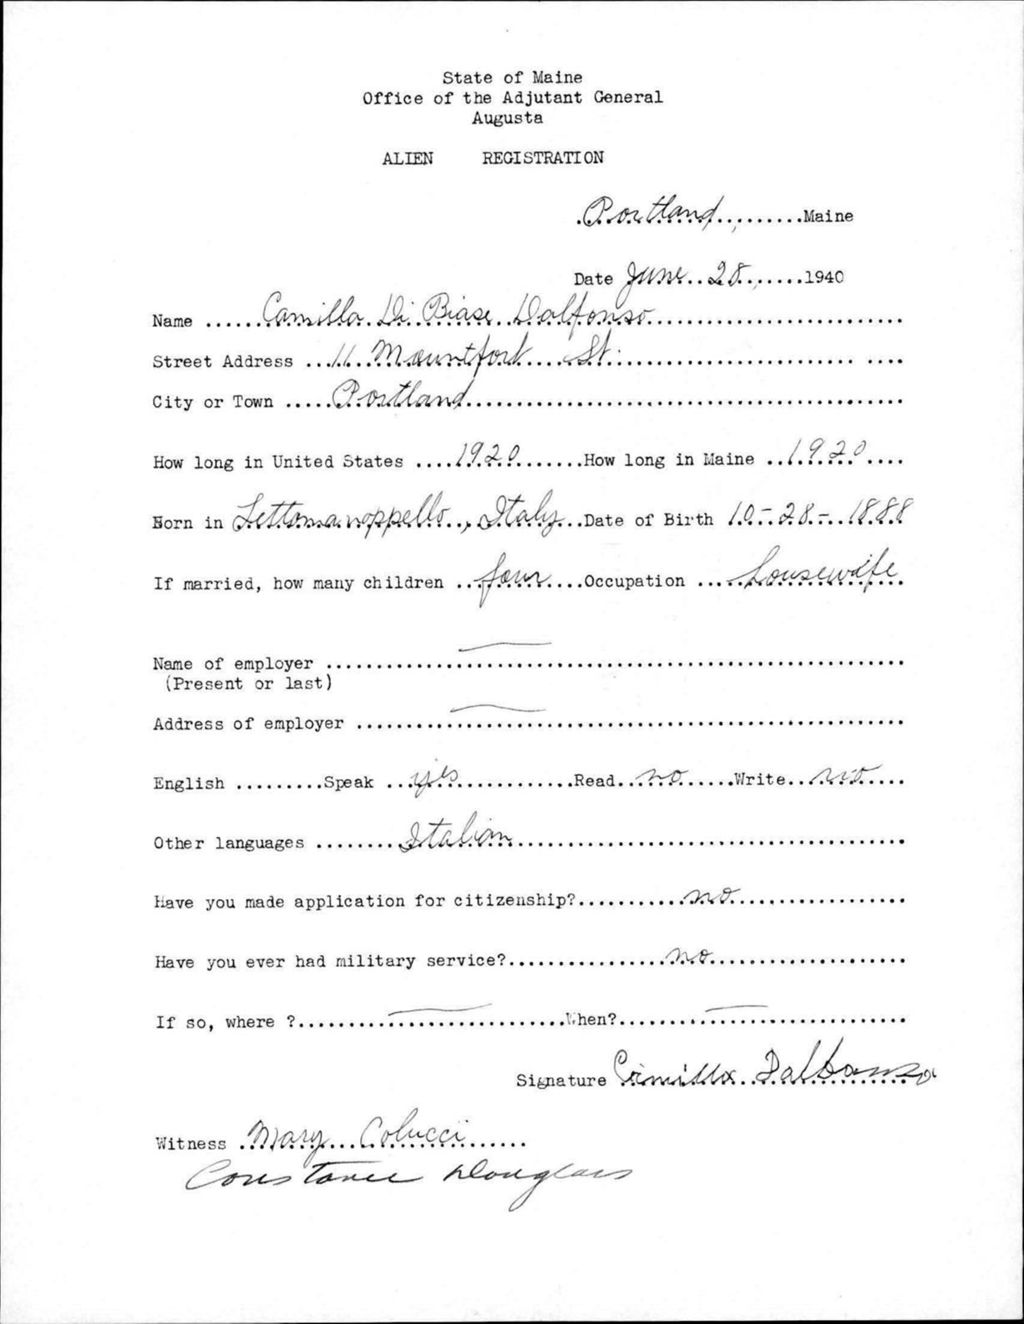 State of Maine
Office of the Adjutant General
Augusta
ALIEN REGISTRATION
Portland, Maine
Date June 28, 1940
Name Camilla Di Biase Dalfonso
Street Address 11 Mountfort St.
City or Town Portland
How long in United States 1920 How long in Maine 1920
Born in Lettomanoppello, Italy Date of Birth 10-28-1888
If married, how many children four Occupation Housewife
Name of employer
(Present or last)
Address of employer
English Speak yes Read no Write no
Other languages Italian
Have you made application for citizenship? no
Have you ever had military service? no
If so, where ? When?
Signature Camilla Dalfonso
Witness Mary Colucci
Constance Douglass